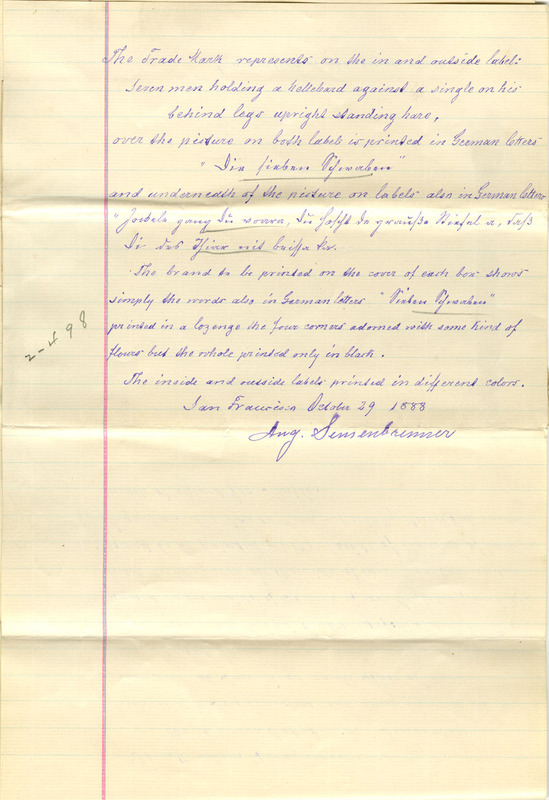 The Trade Mark represents on the in and outside label:
Seven men holding a hellebard against a single on his
behind legs upright standing hare,
over the picture on both labels is printed in German letters
"Die sieben Schwaben"
and underneath of the picture on labels also in German letters
"Jockele gang Du voara, Du hascht de grauße Stiefel a, daß
Di des Thier nit beissa ka.
The brand to be printed on the cover of each box shows
simply the words also in German letters "Sieben Schwaben"
printed in a lozenge the four corners adorned with some kind of
flours but the whole printed only in black.
The inside and outside labels printed in different colors.
San Francisco October 29 1888
Aug. Sensenbrenner
2-498